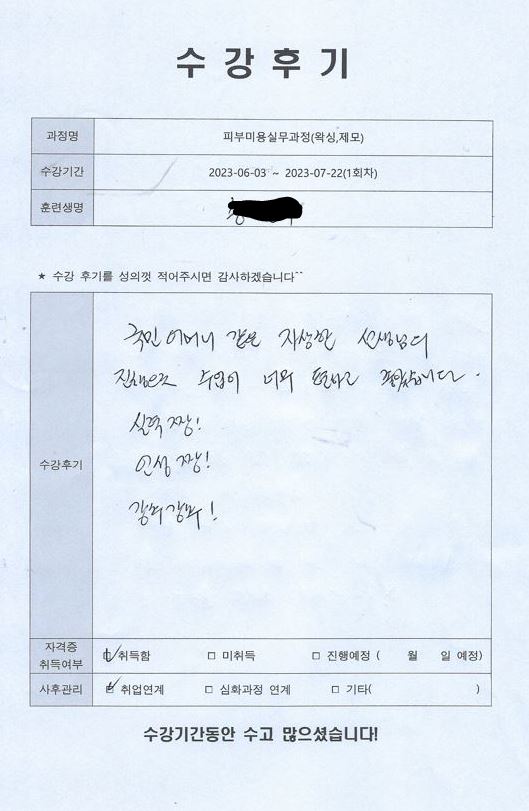 수강후기
과정명 피부미용실무과정(왁싱,제모)
수강기간 2023-06-03 ~ 2023-07-22(1회차)
훈련생명
★ 수강 후기를 성의껏 적어주시면 감사하겠습니다^^
국민 어머니 같은 자상한 선생님의
진행으로 수업이 너무 편하고 좋았습니다.
실력 짱!
인성 짱!
강력강추!
수강후기
자격증
취득여부 ☑ 취득함 □ 미취득 □ 진행예정 ( 월 일 예정)
사후관리 ☑ 취업연계 □ 심화과정 연계 □ 기타( )
수강기간동안 수고 많으셨습니다!